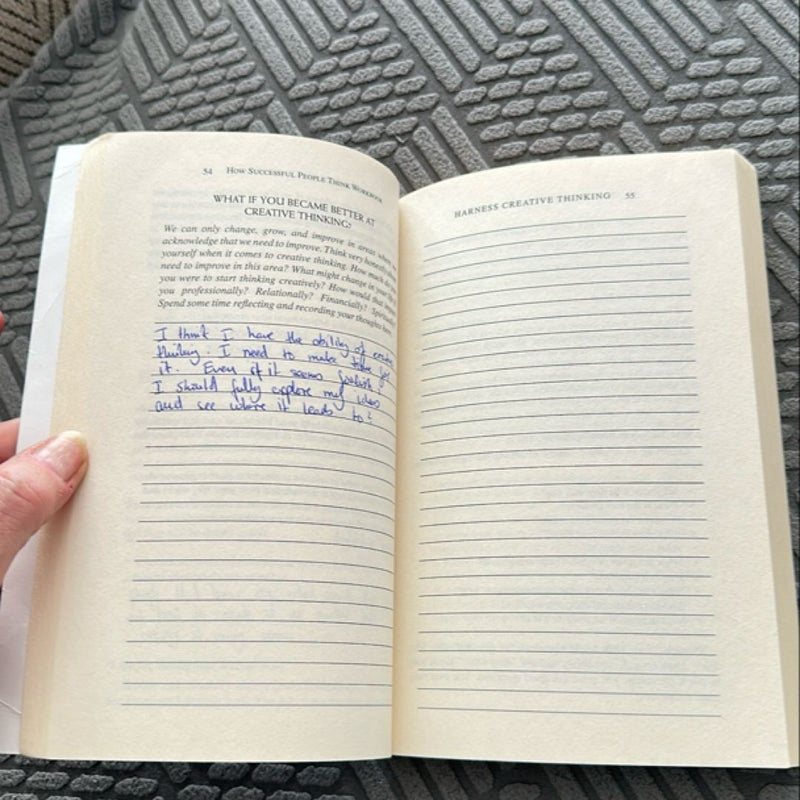 54 HOW SUCCESSFUL PEOPLE THINK WORKBOOK
WHAT IF YOU BECAME BETTER AT
CREATIVE THINKING?
We can only change, grow, and improve in areas where
acknowledge that we need to improve. Think very honestly
yourself when it comes to creative thinking. How much do
need to improve in this area? What might change in your
you were to start thinking creatively? How would that
you professionally? Relationally? Financially?
Spend some time reflecting and recording your thoughts here.
I think I have the ability of
thinking. I need to make time for
it. Even if it seems foolish,
I should fully explore my ideas
and see where it leads to?
HARNESS CREATIVE THINKING 55